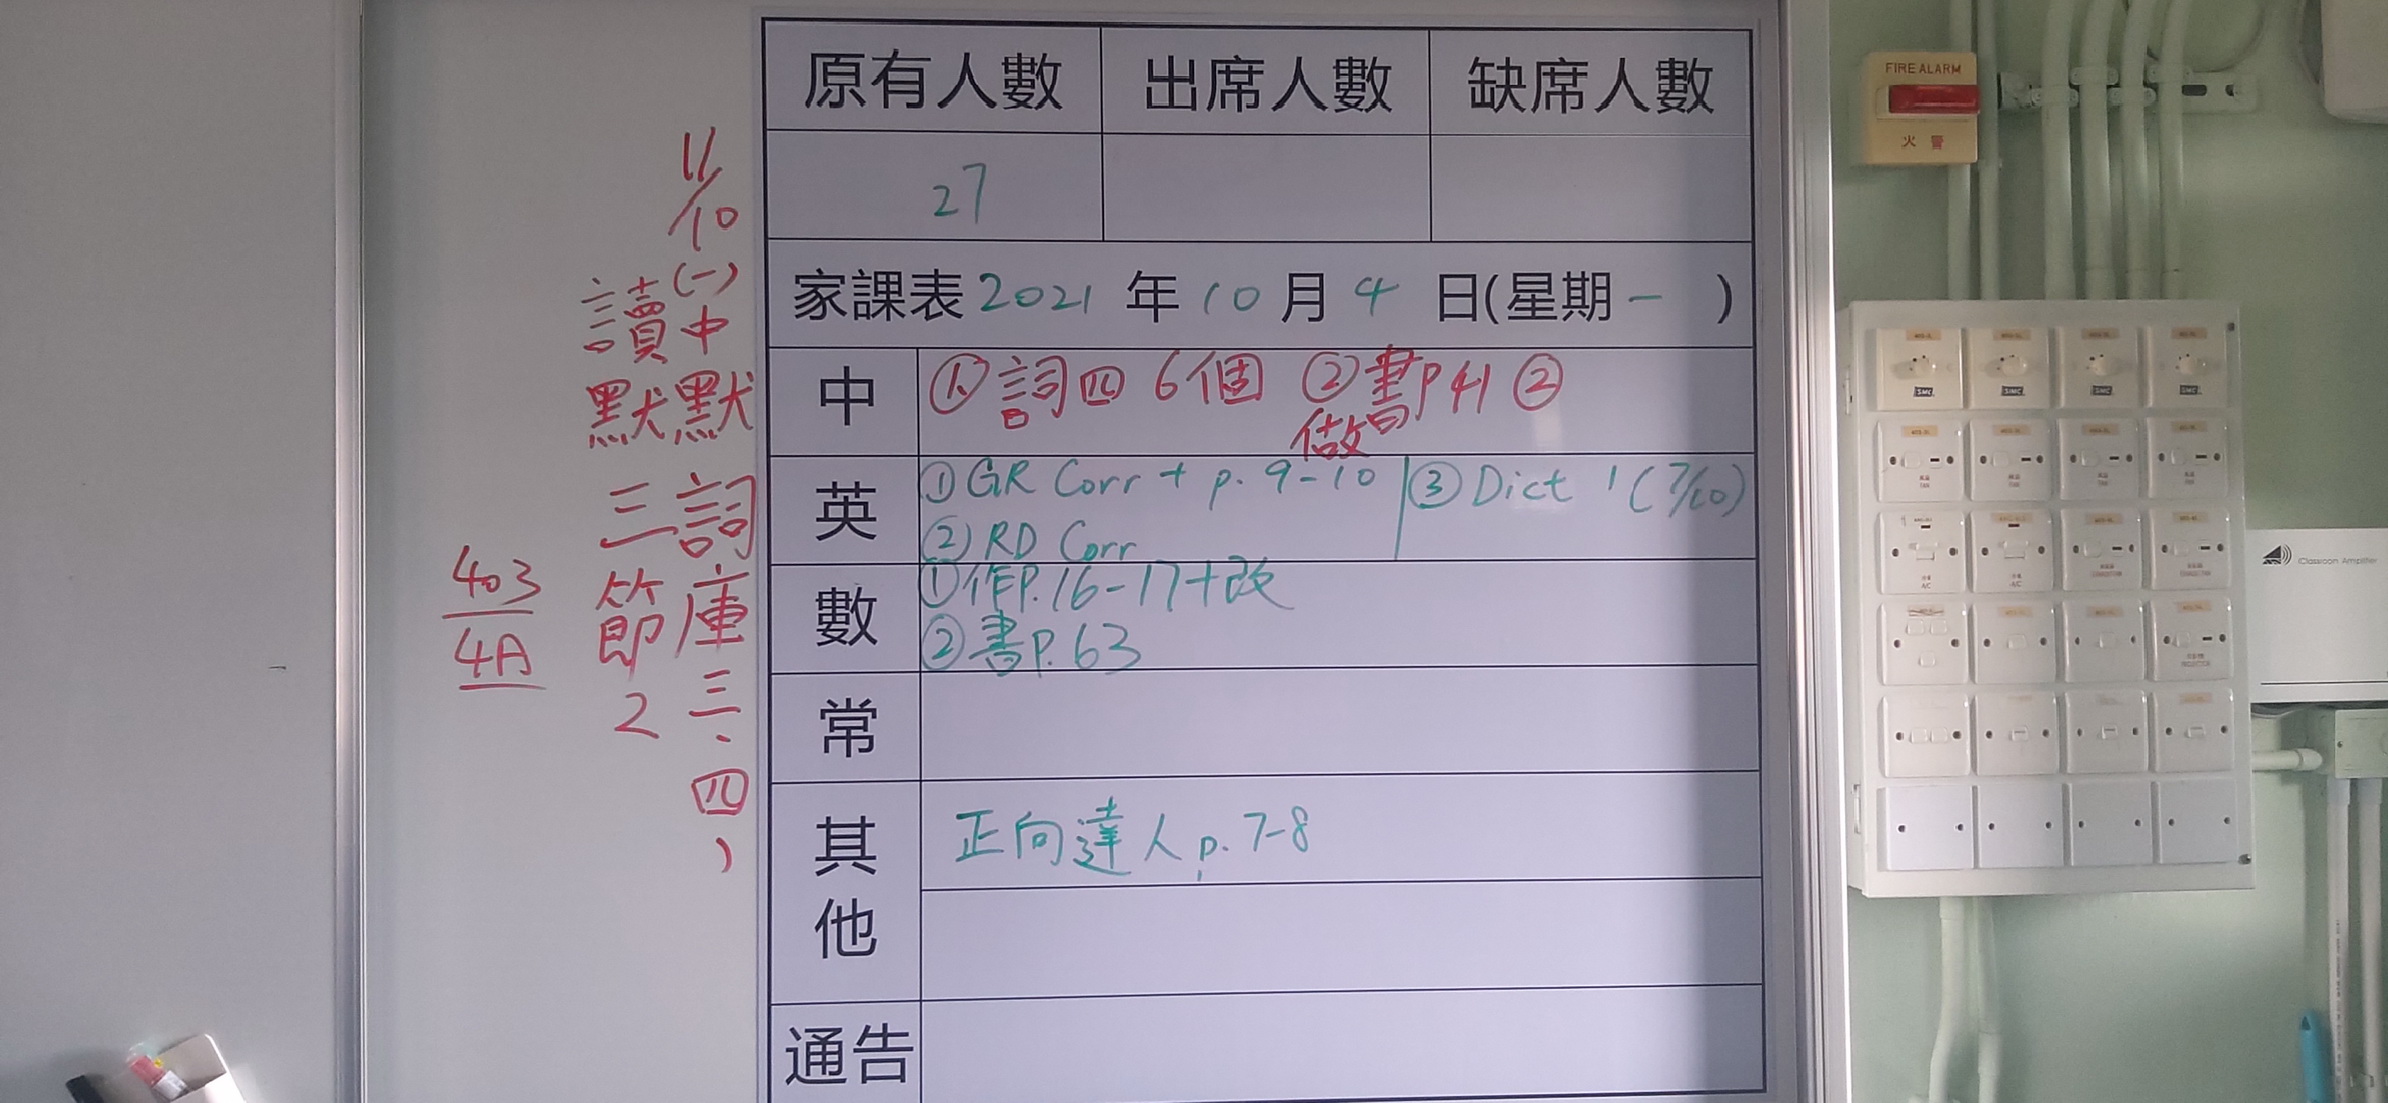 原有人數 出席人數 缺席人數
27
家課表2021年10月4日(星期一)
中 ①詞四 6個 ②書P41②
做
英 ①GR Corr + p. 9-10 ③Dict 1 (7/10)
②RD Corr
數 ①作P.16-17+改
②書P.63
常
其他 正向達人 p. 7-8
通告
11/10
(一)
中默
詞庫三、四
讀默
三節2
403
4A
FIRE ALARM
火警
iClassroom Amplifier